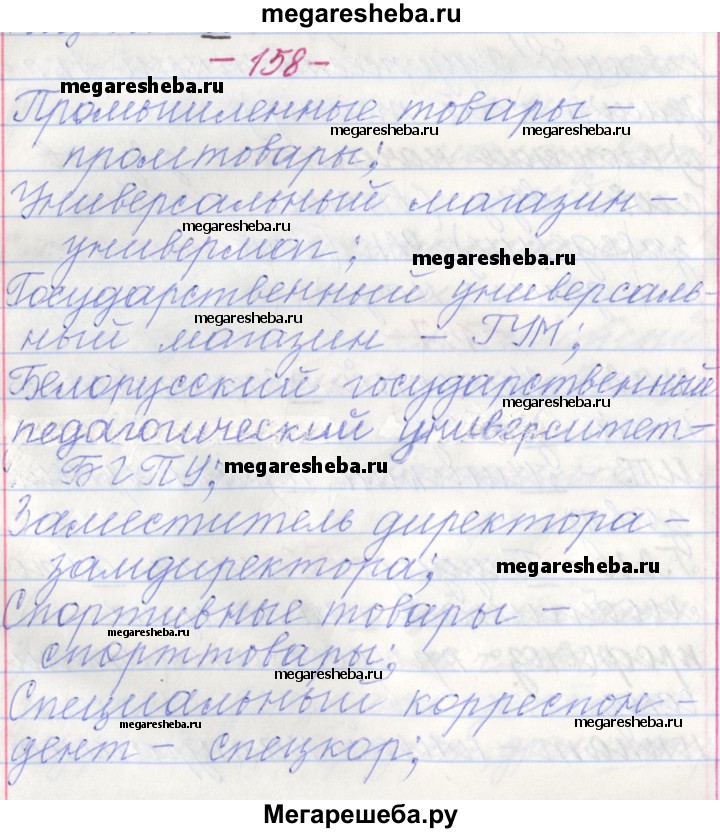 megaresheba.ru
- 158 -
megaresheba.ru
Промышленные товары -
megaresheba.ru megaresheba.ru
промтовары;
Универсальный магазин -
megaresheba.ru
универмаг;
megaresheba.ru
Государственный универсаль-
megaresheba.ru
ный магазин - ГУМ;
Белорусский государственный
megaresheba.ru
педагогический университет-
БГПУ; megaresheba.ru
Заместитель директора -
замдиректора; megaresheba.ru
Спортивные товары -
megaresheba.ru
спорттовары;
megaresheba.ru
Специальный корреспон-
megaresheba.ru megaresheba.ru
дент - спецкор;
Мегарешеба.ру